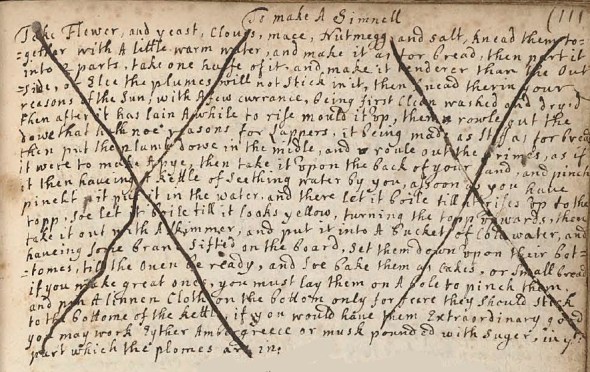 To make A Simnell (111
Take Flower, and yeast, Cloves, mace, Nutmegg, and salt, Knead them to-
-gether with A little warm water, and make it as for bread, then part it
into 2 parts, take one halfe of it, and make it tenderer than the out
-side, or Else the plumes will not stick in it, then Knead therin your
reasons of the Sun, with A few currance, being first Clean washed and dry,d
then after it has lain Awhile to rise mould it up, then rowle out the
dowe that has noe reasons for Cappers, it being made as stif as for bread
then put the plumb dowe in the midle, and roule out the brimes, as if
it were to make A pye, then take it upon the back of your hand, and pinch
it then haveing A Kettle of seething water by you, assoon as you have
pincht it put it in the water, and there let it boile till it rises up to the
topp, soe let it boile till it looks yellow, turning the topp downwards, then
take it out with A skimmer, and put it into A bucket of Cold water, and
haveing some bran sifted on the board, set them down upon their bot-
-tomes, till the Oven be ready, and soe bake them as Cakes, or small bread
if you make great ones, you must lay them on A to pinch them,
and pin A linnen Cloth on the bottom only for feere they should stick
to the bottome of the kettle, if you would have them Extraordinary good
you may work Eyther Ambergreece or musk pounded with Suger, in yt
part which the plomes are in: